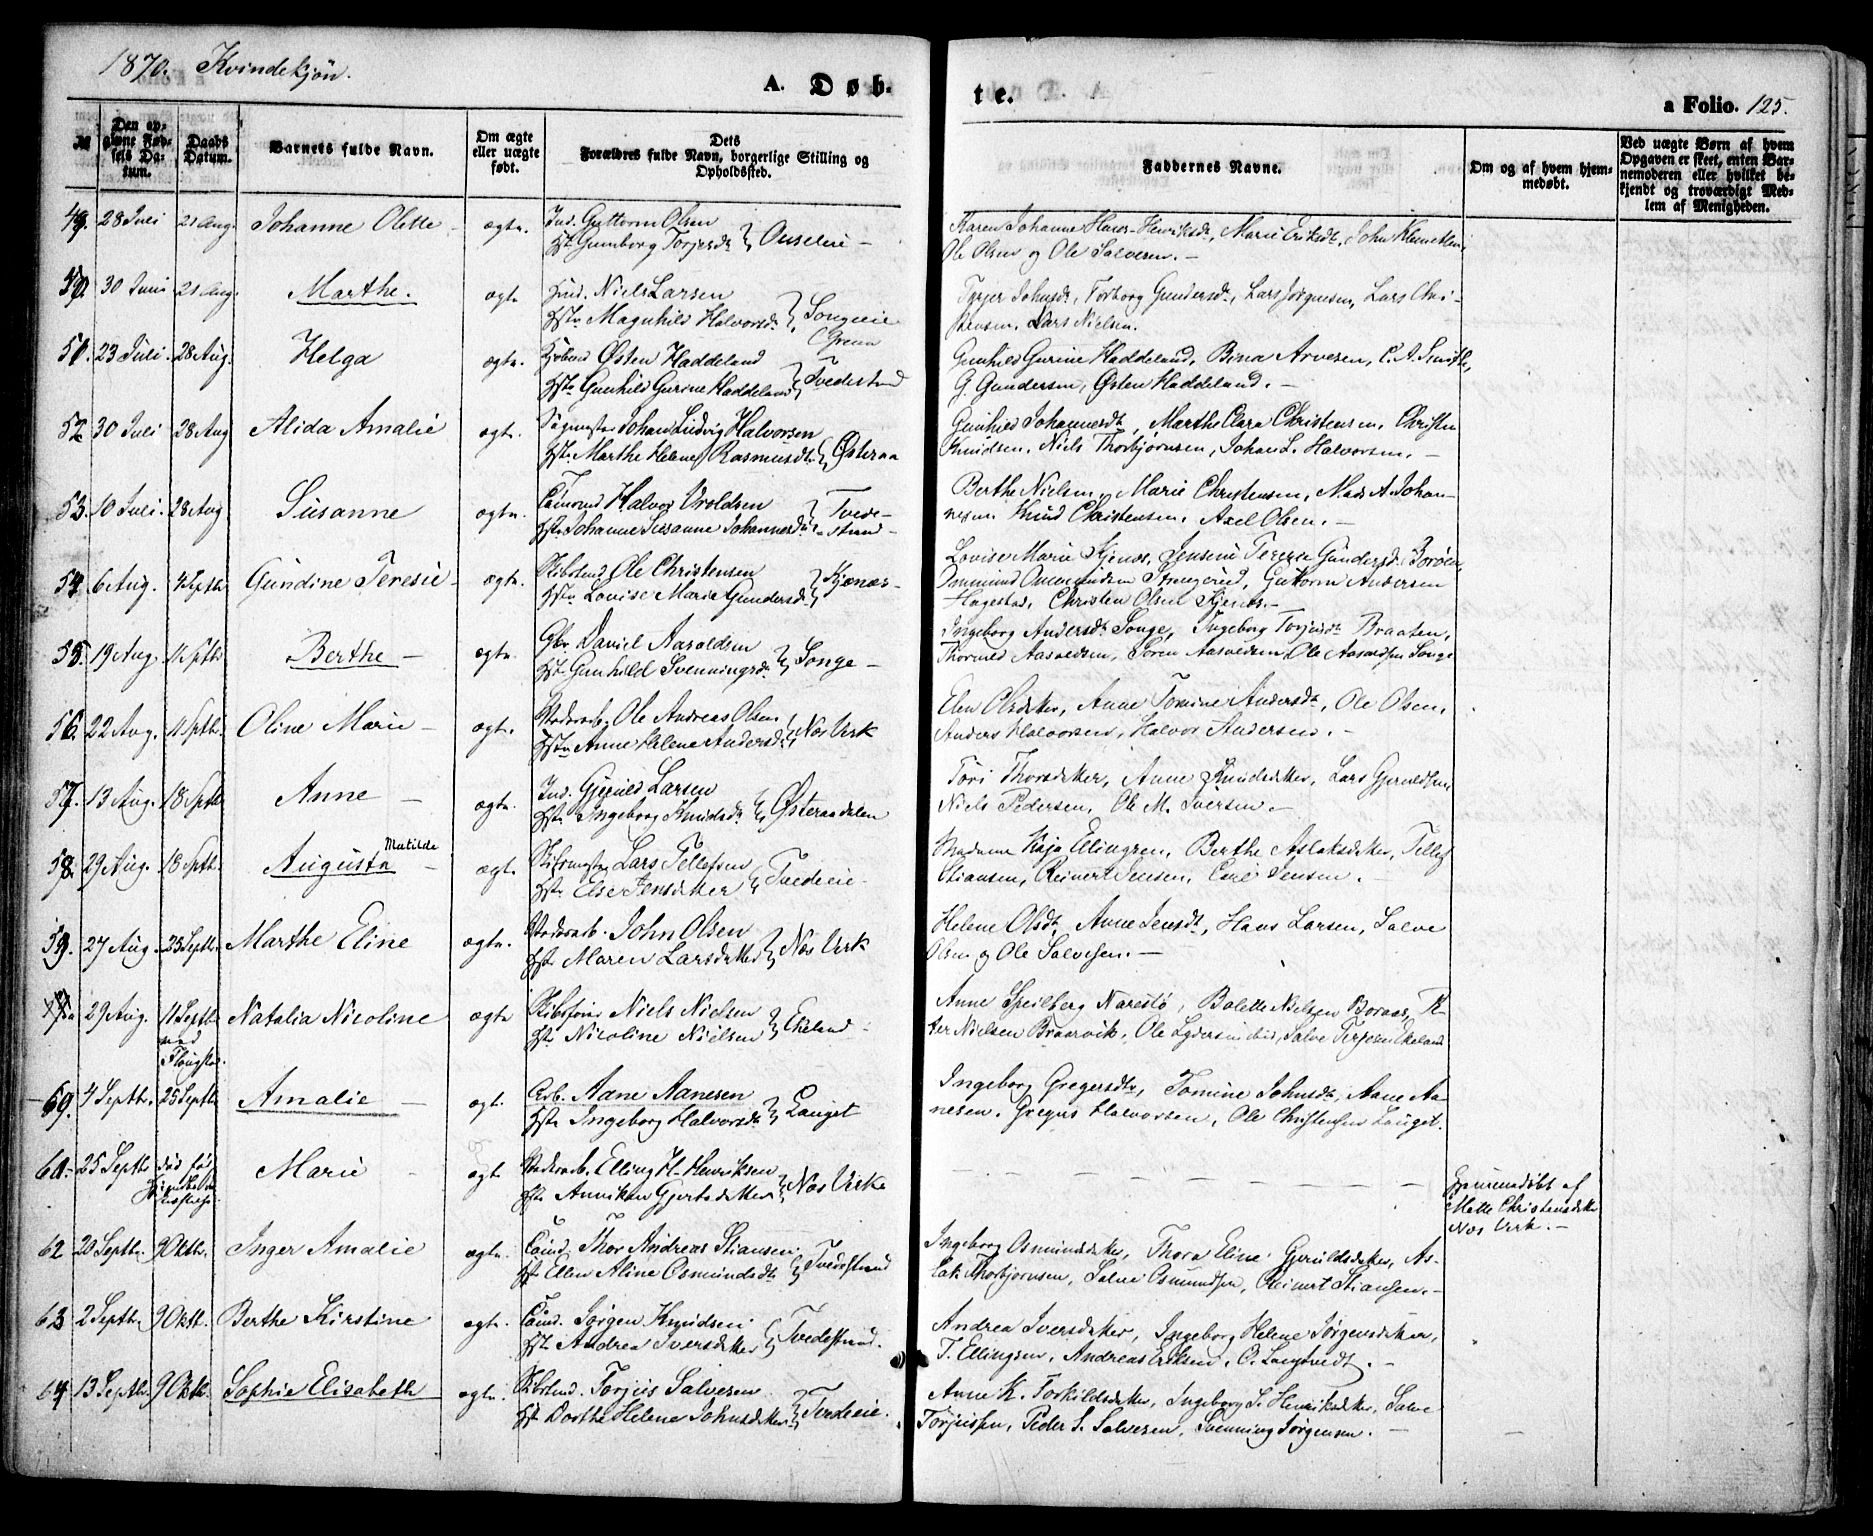 1870. Kvindekjøn.
A. Døb-
te.
a Folio. 125.
№
Den op-
givne Fød-
sels Da-
tum.
Daabs
Datum.
Barnets fulde Navn.
Om ægte
eller uægte
født.
Dets
Forældres fulde Navn, borgerlige Stilling og
Opholdssted.
Faddernes Navne.
Om og af hvem hjem-
medøbt.
Ved uægte Børn af hvem
Opgaven er skeet, enten Bar-
nemoderen eller hvilket be-
kjendt og troværdigt Med-
lem af Menigheden.
49. 28 Juli 21 Aug. Johanne Olette - ægte. Ind. Guttorm Olsen
Hst. Gunborg Torjusdt
Karen Johanne Henriksdt, Marie Eriksdt, John Klemetsen,
Ole Olsen og Ole Salvesen. -
50. 30 Juni 21 Aug. Marthe. ægte Ind. Niels Larsen
Hstr Magnhild Halvorsdt } Songeeie
Grenn
Johnsdt, Torborg Gundersdt, Lars Jørgensen, Lars Chri-
stensen, Lars Nielsen.
51. 23 Juli. 28 Aug. Helga ægte. Østen Haddeland
Hstr Gunhild Gurine Haddeland } Tvedestrand
Gunhild Gurine Haddeland, Bina Arnesen, C. A. Smith,
G. Gundersen, Østen Haddeland. -
52. 30 Juli 28 Aug Alida Amalie ægte. Johan Ludvig Halvorsen
Hstr. Marthe Helene Rasmusdt } Østeraa
Gunhild Johannesdt, Marthe Clara Christensen, Christen
Knudsen, Niels Thorbjørnsen, Johan L. Halvorsen. -
53. 10 Juli. 28 Aug Susanne ægte. Tømmd Halvor Uroldsen
Hstr Johanne Susanne Johannesdt } Tvede-
strand -
Berthe Nielsen, Marie Christensen, Mads A. Johan-
nesen Knud Christensen, Axel Olsen. -
54. 6 Aug. 4 Septbr Gundine Teresie - ægte. Skibstmd Ole Christensen
Hstr Lovise Marie Gundersdt } Kjenæs -
Lovise Marie Kjenæs, Jensine Terese Gundersdt Borøen,
Strengereid, Guttorm Andersen
Hagestad, Christen Olsen Kjenæs. -
55. 19 Aug. 11 Sptbr Berthe - ægte. Gbr. Daniel Aasoldsen
Hstr Gunhild Svenningsdt } Songe -
Ingeborg Andersdt Songe, Ingeborg Torjusdt Braaten,
Aasoldsen, Søren Aasoldsen, Ole Aasoldsen Songe
56. 22 Aug. 11 Sptbr. Oline Marie - ægte. Ole Andreas Olsen
Hstr Anne Helene Andersdt } Næs Verk
Elen Olsdatter, Anne Tomine Andersdt, Ole Olsen,
Anders Halvorsen, Halvor Andersen. -
57. 13 Aug. 18 Sptbr Anne - ægte. Ind. Gjeruld Larsen
Hstr. Ingeborg Knudsdt } Østeraadalen
Tori Thorsdatter, Anne Knudsdatter, Lars Gjeruldsen,
Niels Pedersen, Ole M. Iversen. -
58. 29 Aug. 18 Septbr. Augusta Matilde - ægte. Lars Tellefsen
Hstr. Else Jensdatter } Tvedeeie.
Madame Kaja Ellingsen, Berthe Aslaksdatter, Tellef
Stiansen, Reinert Jensen, Emil Jensen. -
59. 27 Aug. 25 Septbr. Marthe Eline ægte. John Olsen
Hstr Maren Larsdatter } Næs Verk
Helene Olsdt, Anne Jensdt, Hans Larsen, Salve
Olsen og Ole Salvesen. -
29 Aug. 11 Septbr Natalia Nicoline ægte Skibsfører Niels Nielsen
ved
Hstr Nicoline Nielsen } Ekeland -
Anne Speilberg Narestø, Bolette Nielsen Boraas, Pe-
ter Nielsen Braarvik, Ole Lydersen ibid, Salve Terjesen Ekeland
60. 4 Septbr. 25 Septbr Amalie - ægt. Arb. Aane Aanesen
Hstr Ingeborg Halvorsdt } Lauget
Ingeborg Gregersdtr, Tomine Johnsdt, Aane Aa-
nesen, Gregus Halvorsen, Ole Christensen Lauget.
61. 25 Septbr død før Marie - ægte Elling H. Henriksen
Hstr Anniken Gjertsdatter } Næs Verk
Hjemmedøbt af
Mette Christensdatter
Næs Verk. -
62 20 Septbr. 9 Oktbr. Inger Amalie ægte. Tømd. Thor Andreas Stiansen
Hst. Ellen Aline Osmundsdt } Tvedestrand
Ingeborg Osmundsdatter, Thora Eline Gjeruldsdatter, As-
lak Thorbjørnsen, Salve Osmundsen, Reinert Stiansen. -
63 2 Septbr. 9 Oktbr. Berthe Kirstine ægte. Tømd. Jørgen Knudsen
Hst. Andrea Iversdatter } Tvedestrand.
Andrea Iversdatter, Ingeborg Helene Jørgensdatter,
T. Ellingsen, Andreas Eriksen, O. Langtvedt. -
64 13 Septbr. 9 Oktbr. Sophie Elisabeth ægte. Skibstmd. Torjus Salvesen
Hst. Dorthe Helene Johnsdatter } Tvedeeie.
Anne K. Torkildsdatter, Ingeborg S. Henriksdatter, Salve
Torjussen, Peder S. Salvesen, Svenning Jørgensen. -